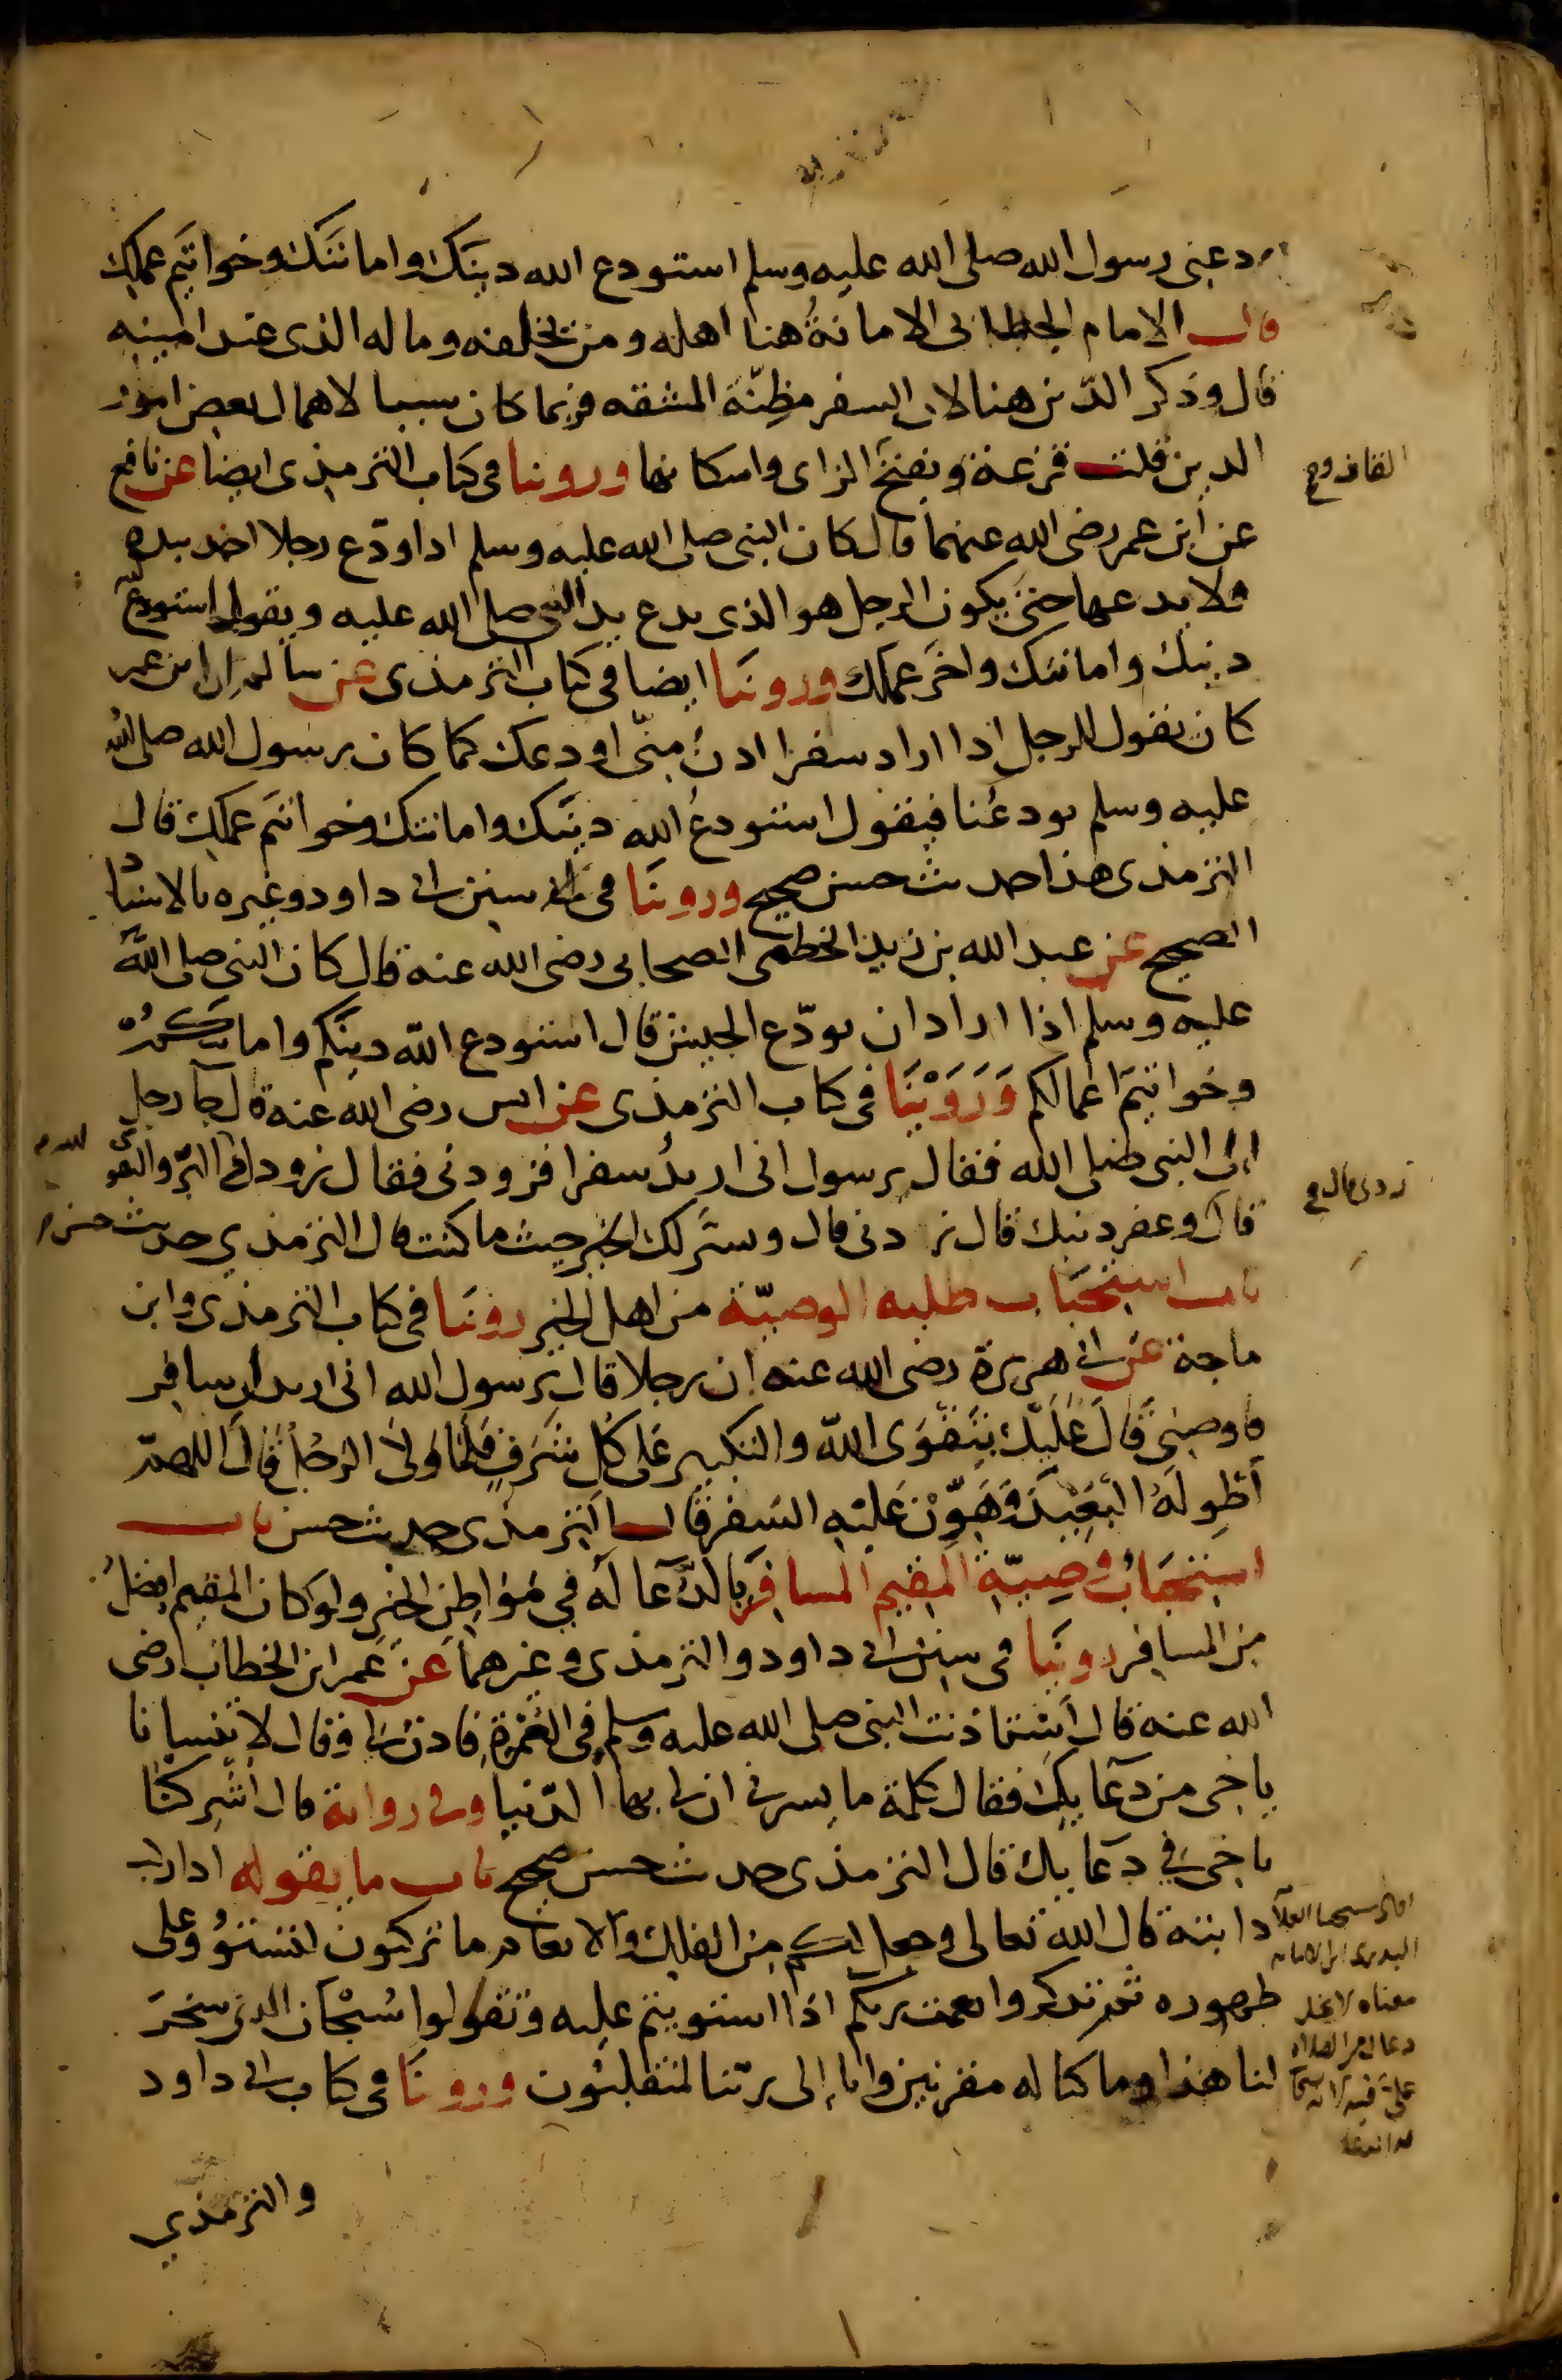 ودعنى رسول الله صلى الله عليه وسلم استودع الله دينَك وامانتَك وخواتيم عملِك
قال الامام الخطابى الامانةُ هنا اهله ومن يخلفه وماله الذى عند امينه
قال وذكر الدّين هنا لان السفر مظِنّة المشقه فربما كان سببا لاهمال بعض امور
الدين قلت قزعة وبفتح الزاى واسكانها وروينا فى كتاب الترمذى ايضا عن نافع
القاف وح
عن ابن عمر رضى الله عنهما قال كان النبى صلى الله عليه وسلم اذا ودّع رجلا اخذ بيده
فلا يدعها حتى يكون الرجل هو الذى يدع يد النبى صلى الله عليه ويقول استودع
دينك وامانتك واخر عملك وروينا ايضا فى كتاب الترمذى عن سالم ان ابن عمر
كان يقول للرجل اذا اراد سفرا ادن منّى اودعك كما كان رسول الله صلى الله
عليه وسلم يودعُنا فيقول استودعُ الله دينَك وامانتك وخواتم عملك قال
الترمذى هذا حديث حسن صحيح وروينا فى سنن ابى داود وغيره بالاسناد
الصحيح عن عبد الله بن زيد الخطمى الصحابى رضى الله عنه قال كان النبى صلى الله
عليه وسلم اذا اراد ان يودّع الجيش قال استودع الله دينكم وامانتكم
وخواتيمَ اعمالكم وَرَوَيْنَا فى كتاب الترمذى عن انس رضى الله عنه قال جا رجل
الى النبى صلى الله فقال يرسول انى اريدُ سفرا فزودنى فقال زودك البرّ والتقوى
قال وغفر ذنبك قال زدنى قال ويسَّر لك الخير حيث ما كنت قال الترمذي حديث حسن
زدنى قال و
باب استحبَاب طلبه الوصيّة من اهل الخير روينَا فى كتاب الترمذى وابن
ماجة عن ابى هريرة رضى الله عنه ان رجلا قال يرسول الله انى اريد ان اسافر
فاوصنى قَالَ عَلَيْكَ بِتَقْوَى اللّه والتكبير عَلى كُلِ شَرَفٍ فَلمَّا وَلى الرَجُل قَالَ اللهمّ
أطْوِ لَهُ البَعِيْدَ وَهَوِّنْ عَليْهِ السَفر قال الترمذى حديث حسن باب
استحبَابُ وَصِيّةِ المقيم المسافِرَ بالدُّعَا لَه فِي مَوَاطِنِ الخير ولو كان المقيم افضلُ
من المسافر روينَا فى سنن ابى داود والترمذى وغيرهما عَنْ عُمر ابن الخطاب رضى
الله عنه قال استاذنت النبى صلى الله عليه وسلم فِى العُمْرة فاذن لى وقال لا تنسانا
ياخى من دعَايك فقال كلمة ما يسرنى ان لى بها الدّنيا وفى رواية قال اشركنا
ياخى فِي دعَايك قال الترمذى حديث حسن صحيح باب ما يقوله اذا ركب
دابته قال الله تعالى وجعل لكم من الفلك والانعام ما تركبون لتستوُوا على
ظهوره ثم تذكروا نعمت ربكم اذا استويتم عليه وتقولوا سُبْحَان الذى سخرَ
لنا هذا وما كنا له مقرنين وانا إلى ربّنا لمنقلبُون وروينَا فى كتاب ابى داود
والترمذي